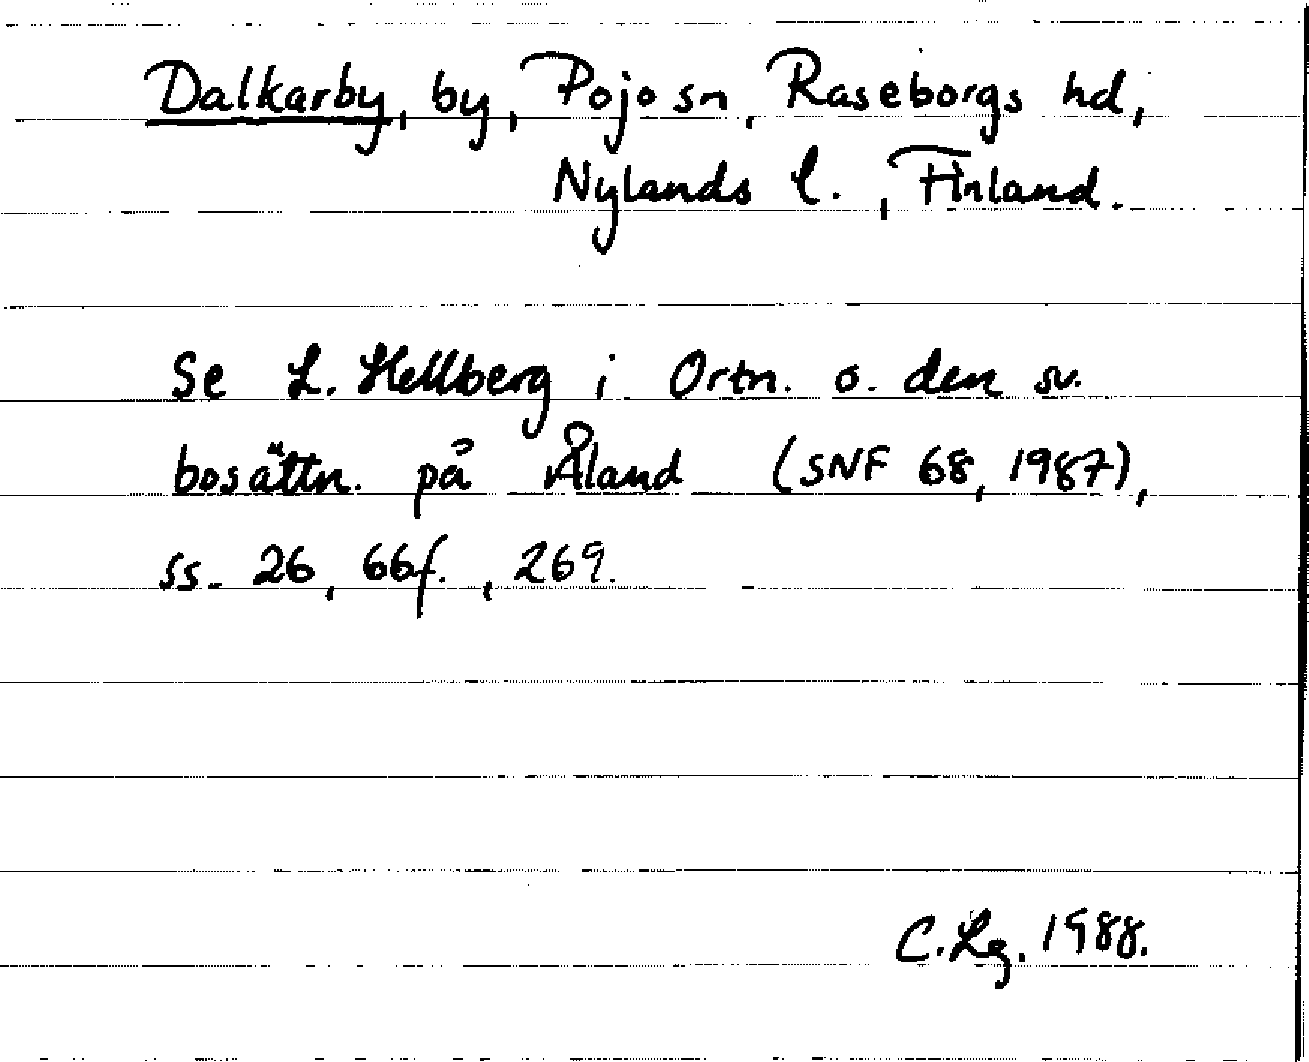 Dalkarby, by, Pojo sn, Raseborgs hd,
Nylands l., Finland.
Se L. Hellberg i Ortn. o. den sv.
bosättn. på Åland (SNF 68, 1987),
ss. 26, 66f., 269.
C. Lg. 1988.